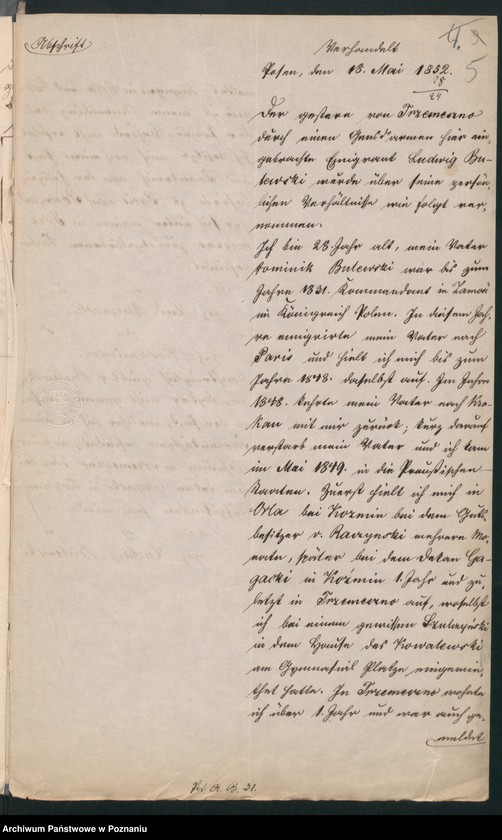 Abschrift
4.
5
Verhandelt
Posen, den 18. Mai 1852.
Der gestern von Trzemeszno
durch einen Gensd'armen hier ein-
gebrachte Emigrant Ludwig Bu-
lewski wurde über seine persön-
lichen Verhältnisse wie folgt ver-
nommen.
Ich bin 28. Jahr alt, mein Vater
Dominik Bulewski war bis zum
Jahre 1831. Kommandant in Zamość
im Königreich Polen. In diesem Jah-
re emigrirte mein Vater nach
Paris und hielt ich mich bis zum
Jahre 1848. daselbst auf. Im Jahre
1848. kehrte mein Vater nach Kra-
kau mit mir zurück; kurz darauf
verstarb mein Vater und ich kam
im Mai 1849. in die Preußischen
Staaten. Zuerst hielt ich mich in
Orla bei Kozmin bei dem Guts-
besitzer v. Raczynski mehrere Mo-
nate, später bei dem Dekan Ga-
gacki in Koźmin 1. Jahr und zu-
letzt in Trzemeszno auf, woselbst
ich bei einem gewissen
in dem Hause des Kowalewski
am Gymnasial Platze eingemie-
thet hatte. In Trzemeszno wohnte
ich über 1. Jahr und war auch ge-
meldet
Pol. Pr. B. 31.
Archiwum Państwowe w Poznaniu